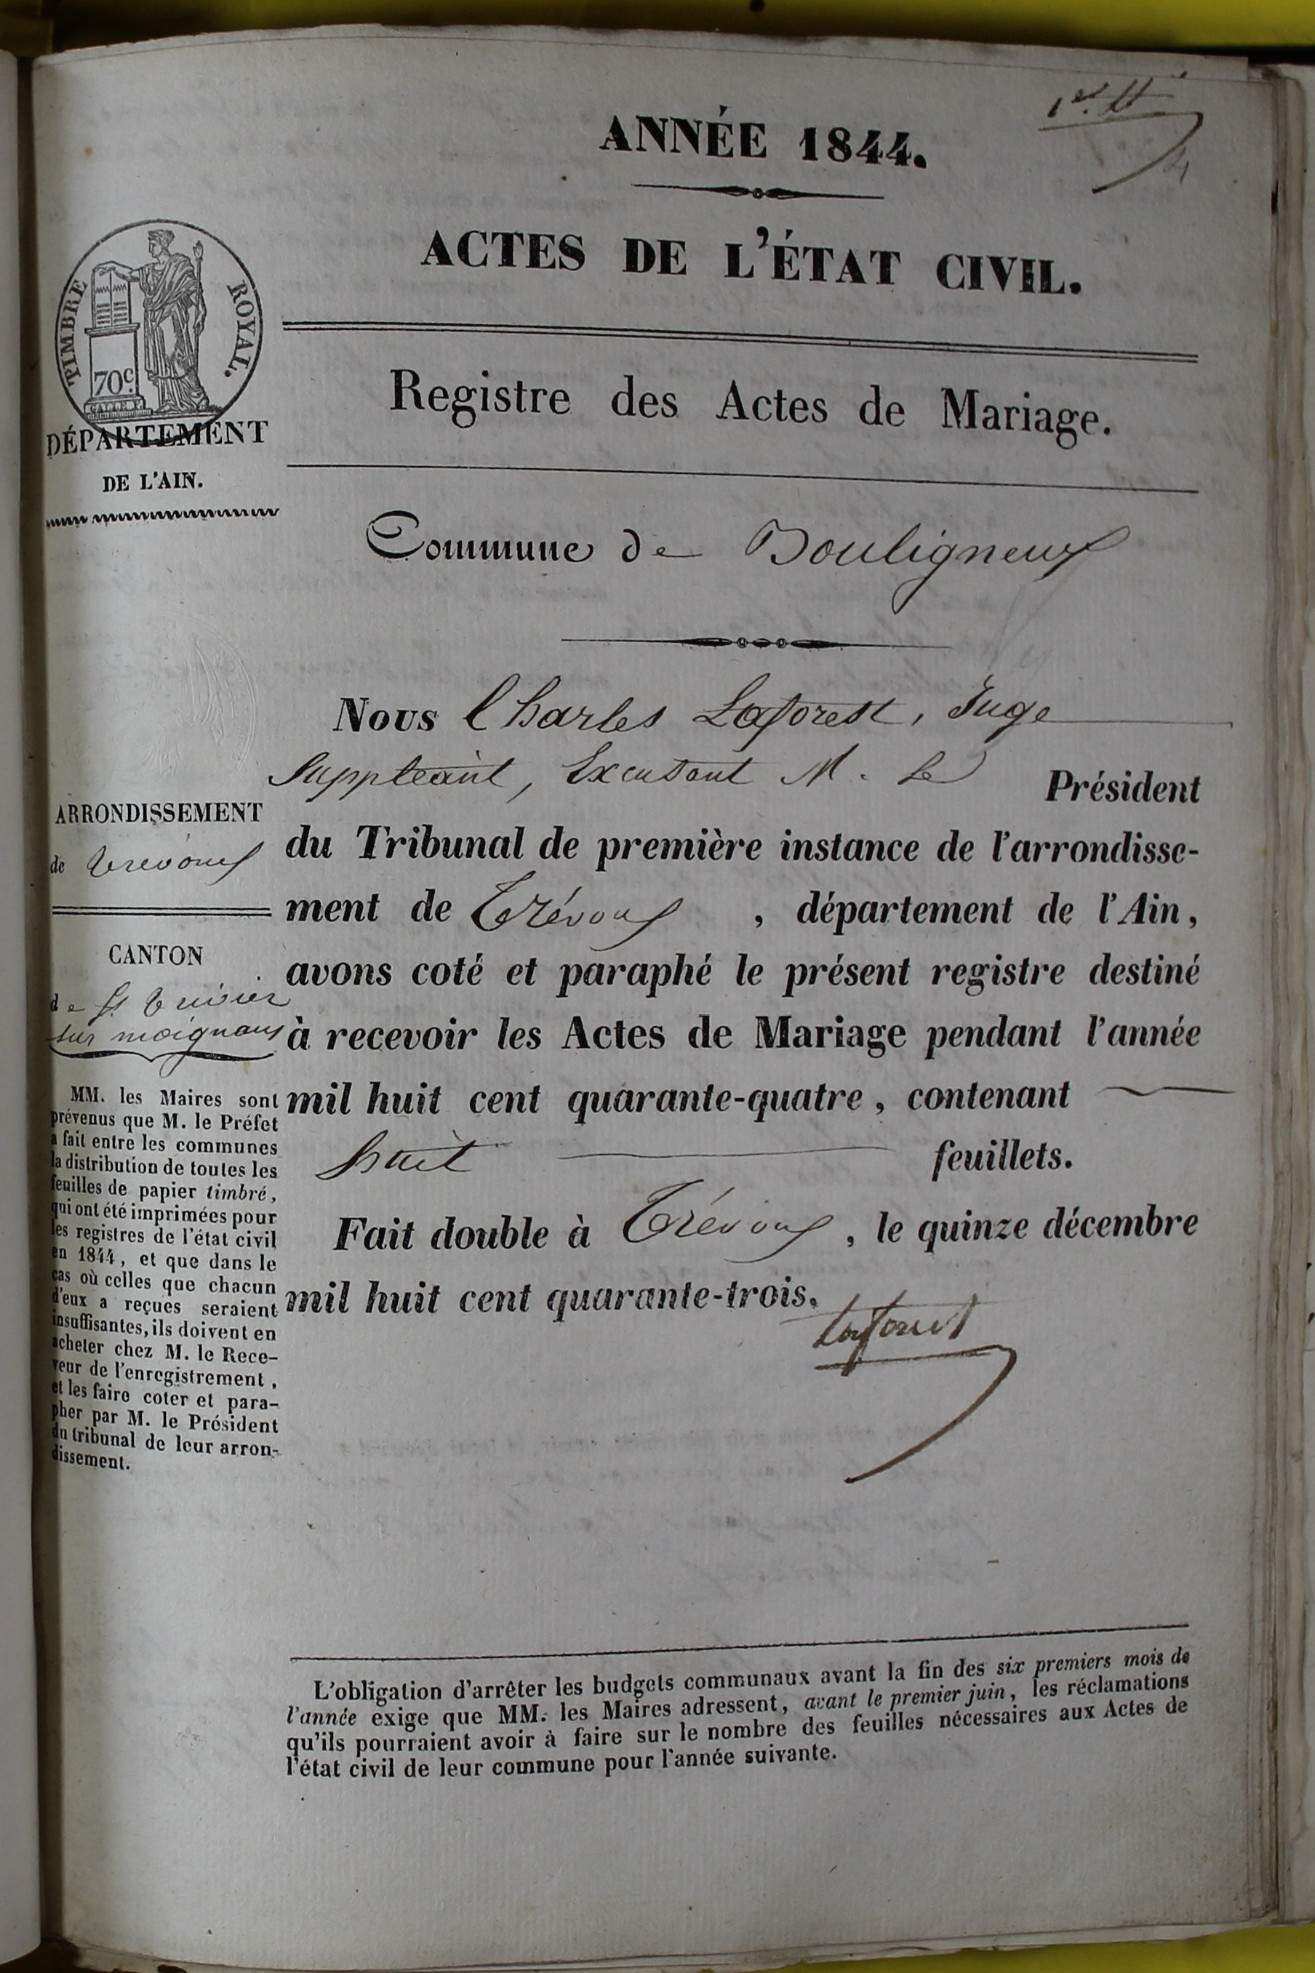 1er. ft
ANNÉE 1844.
ACTES DE L'ÉTAT CIVIL.
TIMBRE ROYAL.
70c.
DÉPARTEMENT
DE L'AIN.
Registre des Actes de Mariage.
Commune de Bouligneux
Nous Charles Laforest, Juge
Suppleant, Excusant M. Le Président
du Tribunal de première instance de l'arrondisse-
ment de Trévoux, département de l'Ain,
avons coté et paraphé le présent registre destiné
à recevoir les Actes de Mariage pendant l'année
mil huit cent quarante-quatre, contenant
huit feuillets.
Fait double à Trévoux, le quinze décembre
mil huit cent quarante-trois.
Laforest
ARRONDISSEMENT
de Trevoux
CANTON
de St Trivier
sur moignans
MM. les Maires sont
prévenus que M. le Préfet
a fait entre les communes
la distribution de toutes les
feuilles de papier timbré,
qui ont été imprimées pour
les registres de l'état civil
en 1844, et que dans le
cas où celles que chacun
d'eux a reçues seraient
insuffisantes, ils doivent en
acheter chez M. le Rece-
veur de l'enregistrement,
et les faire coter et para-
pher par M. le Président
du tribunal de leur arron-
dissement.
L'obligation d'arrêter les budgets communaux avant la fin des six premiers mois de
l'année exige que MM. les Maires adressent, avant le premier juin, les réclamations
qu'ils pourraient avoir à faire sur le nombre des feuilles nécessaires aux Actes de
l'état civil de leur commune pour l'année suivante.